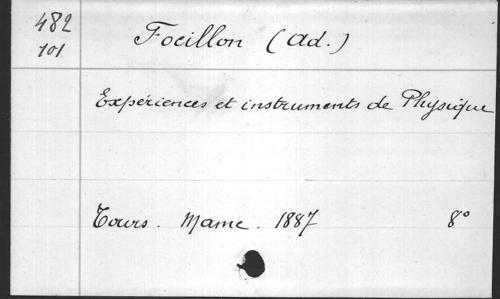 482 Focillon (Ad.)
101
Expériences et instruments de Physique
Tours. Mame. 1887 8°